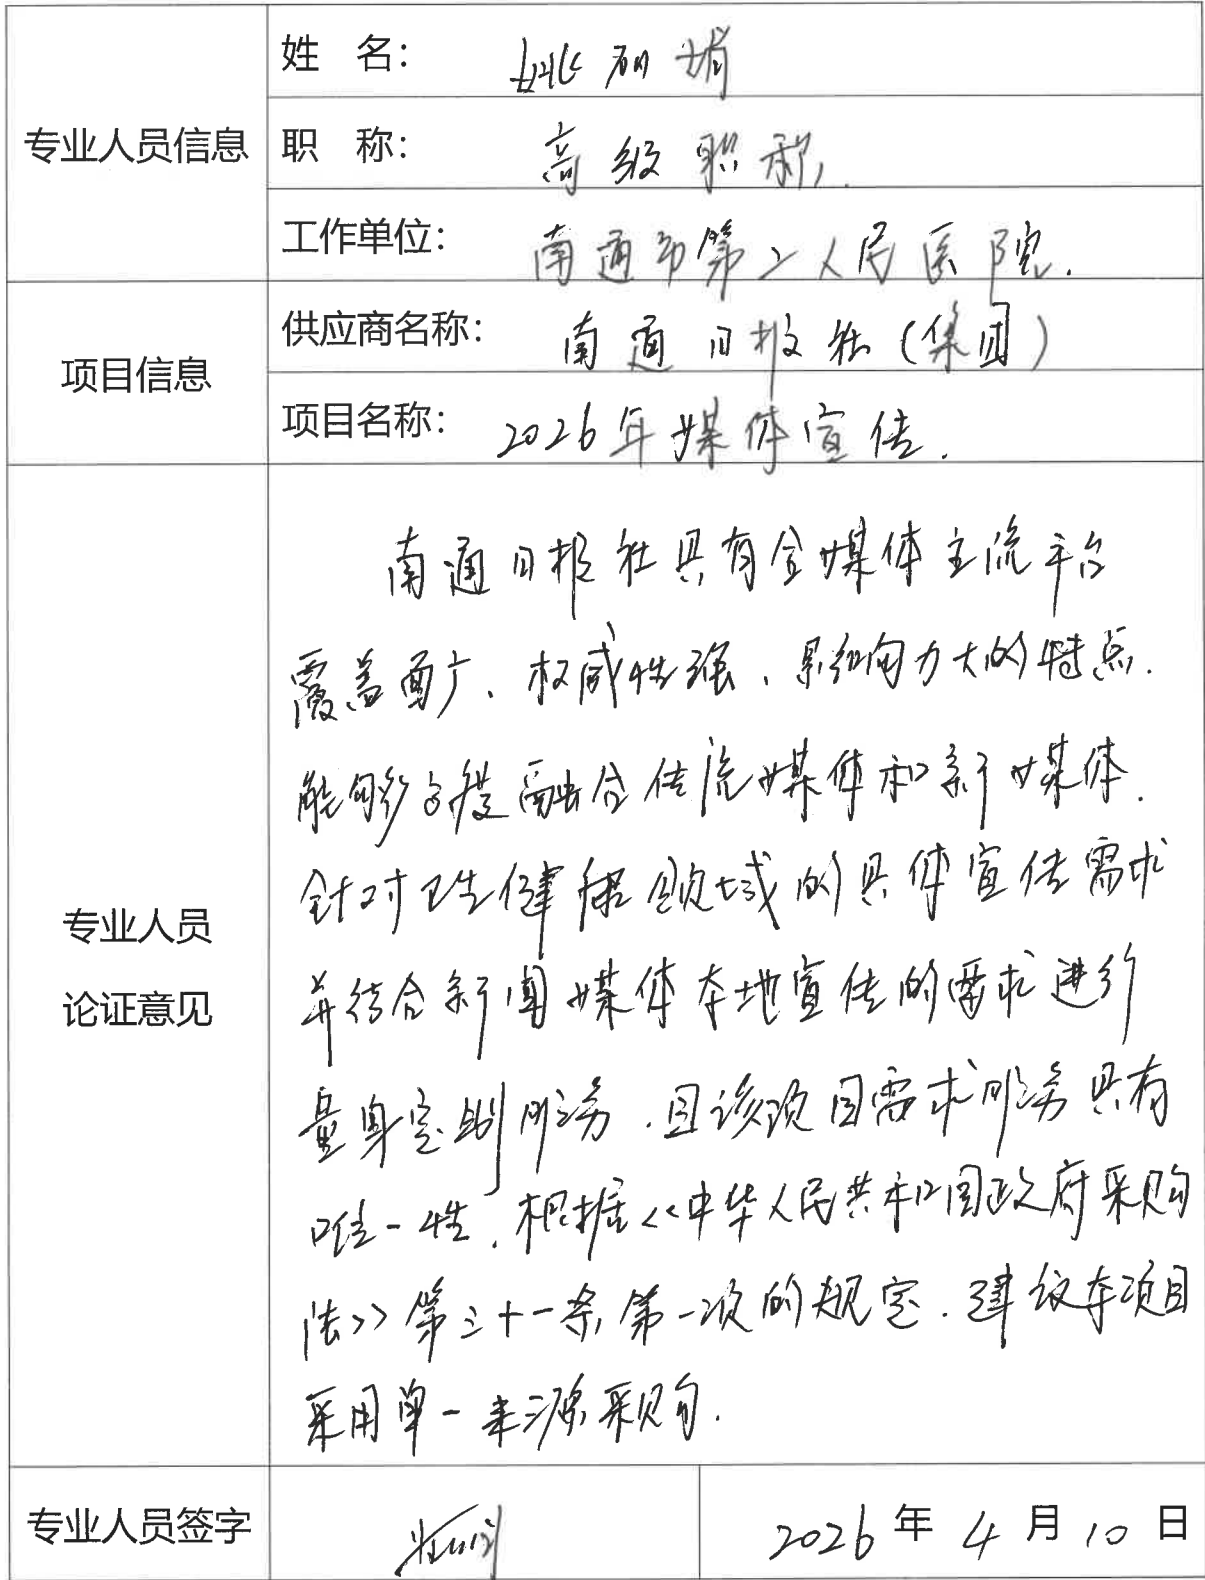 姓 名： 姚丽娟
专业人员信息
职 称： 高级职称.
工作单位： 南通市第二人民医院.
供应商名称： 南通日报社(集团)
项目信息
项目名称： 2026年媒体宣传.
南通日报社具有全媒体主流平台
覆盖面广、权威性强、影响力大的特点.
能够高度融合传统媒体和新媒体.
针对卫生健康领域的具体宣传需求
并结合新闻媒体本地宣传的需求进行
量身定制服务.且该项目需求服务具有
唯一性.根据<<中华人民共和国政府采购
法>>第三十一条第一项的规定.建议本项目
采用单一来源采购.
专业人员
论证意见
专业人员签字
2026年4月10日